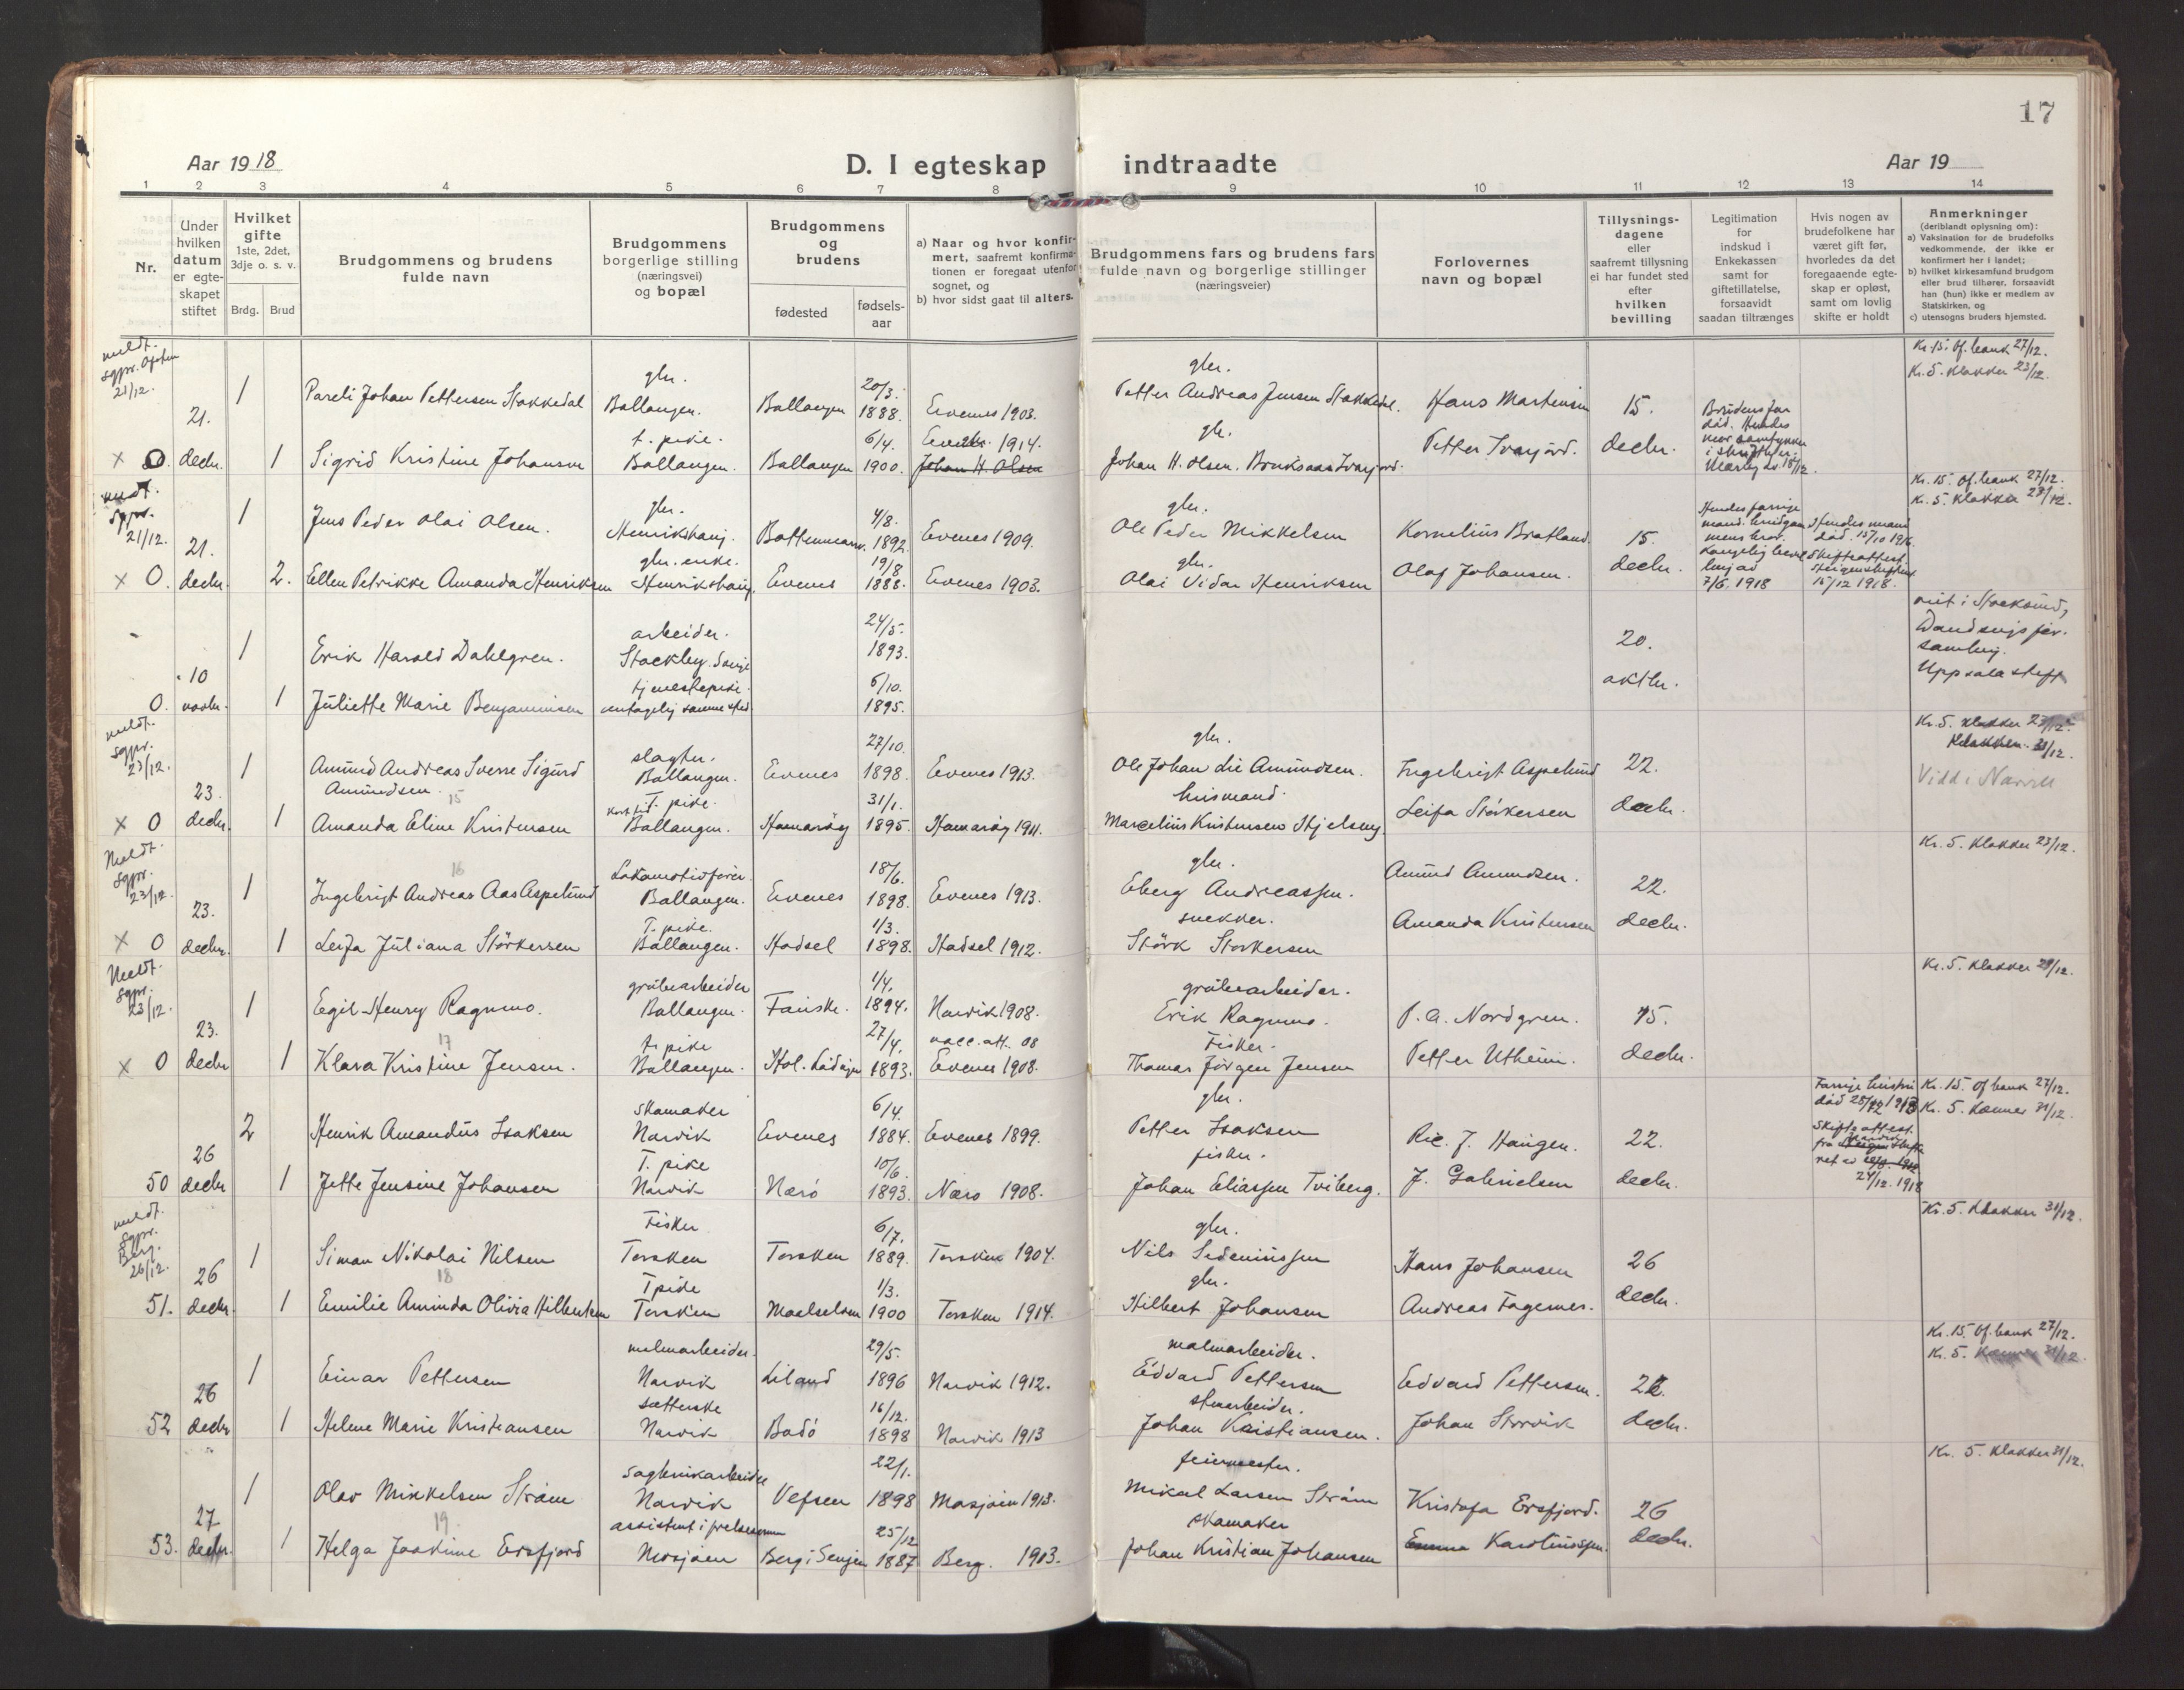 17
Aar 1918
D. I egteskap indtraadte
Aar 19
1 2 3 4 5 6 7 8 9 10 11 12 13 14
Nr.
Under hvilken datum er egteskapet stiftet
Hvilket gifte
1ste, 2det, 3dje o. s. v.
Brdg. Brud
Brudgommens og brudens fulde navn
Brudgommens borgerlige stilling (næringsvei) og bopæl
Brudgommens og brudens
fødested
fødsels-aar
a) Naar og hvor konfirmert, saafremt konfirmationen er foregaat utenfor sognet, og
b) hvor sidst gaat til alters.
Brudgommens fars og brudens fars fulde navn og borgerlige stillinger (næringsveier)
Forlovernes navn og bopæl
Tillysningsdagene eller saafremt tillysning ei har fundet sted efter hvilken bevilling
Legitimation for indskud i Enkekassen samt for giftetillatelse, forsaavidt saadan tiltrænges
Hvis nogen av brudefolkene har været gift før, hvorledes da det foregaaende egteskap er opløst, samt om lovlig skifte er holdt
Anmerkninger
(deriblandt oplysning om):
a) Vaksination for de brudefolks vedkommende, der ikke er konfirmert her i landet;
b) hvilket kirkesamfund brudgom eller brud tilhører, forsaavidt han (hun) ikke er medlem av Statskirken, og
c) utensogns bruders hjemsted.
meldt. sgpr. Ofoten 21/12.
1 Pareli Johan Pettersen Stokkedal gbr. Ballangen. Ballangen 20/3. 1888. Evenes 1903. gbr. Petter Andreas Jensen Stokkedal. Hans Martinsen 15. Kr. 15. Of. bank 27/12. Kr. 5. klokker 23/12.
x 0. 21. decbr. 1 Sigrid Kristine Johansen t. pike. Ballangen. Ballangen 6/4. 1900. 1914. Johan H. Olsen gbr. Johan H. Olsen. Petter Ivarjord. decbr. Brudens far død. Hendes mor samtykker
meldt. sgpr. 21/12.
1 Jens Peder Olai Olsen. gbr. 4/8. 1892. Evenes 1909. gbr. Ole Peder Mikkelsen Kornelius Bratland. 15. Kr. 15. Of. bank 27/12. Kr. 5 klokker 23/12.
x 0. 21. decbr. 2. Ellen Petrikke Amanda Henriksen gbr. enke. Evenes 19/8 1888. Evenes 1903. gbr. Olai Vidar Henriksen Olaf Johansen. decbr. 7/6. 1918 Hendes mand død. 15/10 1916. Skifteattest 15/12 1918.
1 Erik Harald Dahlgren. arbeider. 24/5. 1893. 20.
0. 10 novbr. 1 Juliette Marie Benjaminsen tjenestepike. samme sted 6/10. 1895. oktbr. Uppsala stift
meldt. sgpr. 23/12.
1 Amund Andreas Sverre Sigurd Amundsen. slagter. Ballangen. Evenes 27/10. 1898. Evenes 1913. gbr. Ole Johan Lie Amundsen. Ingebrigt Aspelund 22. Kr. 5. klokker 23/12. Klokker. 31/12.
15
x 0 23. decbr. 1 Amanda Eline Kristensen T. pike. Ballangen. Hamarøy 31/1. 1895. Hamarøy 1911. husmand. Marcelius Kristensen Leifa Störkersen decbr.
Meldt. sgpr. 23/12.
16
1 Ingebrigt Andreas Aas Aspelund Lokomotivfører. Ballangen. Evenes 18/6. 1898. Evenes 1913. gbr. Eberg Andreassen. Amund Amundsen. 22. Kr. 5. klokker 23/12.
x 0 23. decbr. 1 Leifa Juliana Störkersen T. pike. Ballangen. Hadsel 1/3. 1898. Hadsel 1912. snekker. Störk Storkersen Amanda Kristensen decbr.
Meldt. sgpr. 23/12.
1 Egil Henry Ragnmo. grubearbeider Ballangen. Fauske. 1/4. 1894. Narvik 1908. vacc. att. 08 grubearbeider. Erik Ragnmo. P. A. Nordgren. 15. Kr. 5. klokker 29/12.
17
x 0 23. decbr 1 Klara Kristine Jensen. t. pike Ballangen. 27/4. 1893. Evenes 1908. Fisker. Thomas Jörgen Jensen Petter Utheim. decbr.
2 Henrik Amandus Isaksen skomaker Narvik Evenes 6/4. 1884. Evenes 1899. gbr. Petter Isaksen Ric. J. Haugen. 22. Kr. 15. Of bank 27/12. Kr. 5. kemner 31/12.
50 26 decbr 1 Jette Jensine Johansen T. pike Narvik Nærö 10/6. 1893. Nærö 1908. fisker. Johan Eliassen Tviberg. J. Gabrielsen decbr. 24/12. 1918
meldt. sgpr. Berg. 26/12.
1 Simon Nikolai Nilsen Fisker Torsken Torsken 6/7. 1889. Torsken 1904. gbr. Nils Hans Johansen 26 Kr. 5. klokker 31/12.
18
51. 26 decbr. 1 Emilie Aminda Olivia Hilbertsen T pike Torsken Maalselven 1/3. 1900 Torsken 1914. gbr. Hilbert Johansen Andreas Fagernes. decbr.
1 Einar Pettersen malmarbeider. Narvik Liland 29/5. 1896 Narvik 1912. malmarbeider. Edvard Pettersen Edvard Pettersen. 22. Kr. 15. Of. bank 27/12. Kr. 5. kemner 31/12.
52 26 decbr 1 Helene Marie Kristiansen sætterske Narvik Bodö 16/12. 1898 Narvik 1913 stenarbeider. Johan Kristiansen. Johan Storvik decbr.
1 Olav Mikkelsen Ström sagbrukarbeider Narvik Vefsen 22/1. 1898 Mosjøen 1913. feiermester. Mikal Larsen Ström Kristofa Ersfjord. 26 Kr. 5. klokker 31/12.
19
53. 27 decbr. 1 Helga Joakime Ersfjord assistent i frelsesarmeen Mosjøen Berg i Senjen 25/12 1887 Berg. 1903. skomaker Johan Kristian Johansen Emma Karoliussen. decbr.